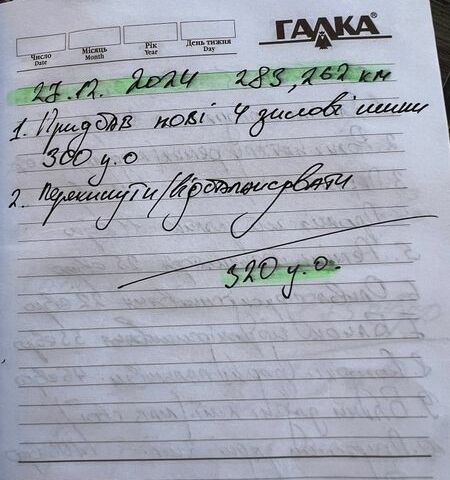 ГАЛКА®
Число Місяць Рік День тижня
Date Month Year Day
27.12. 2024 283,262 км
1. Придбав нові 4 зимові шини
300 у.о
2. Перекинути/відбалансувати
320 у.о.